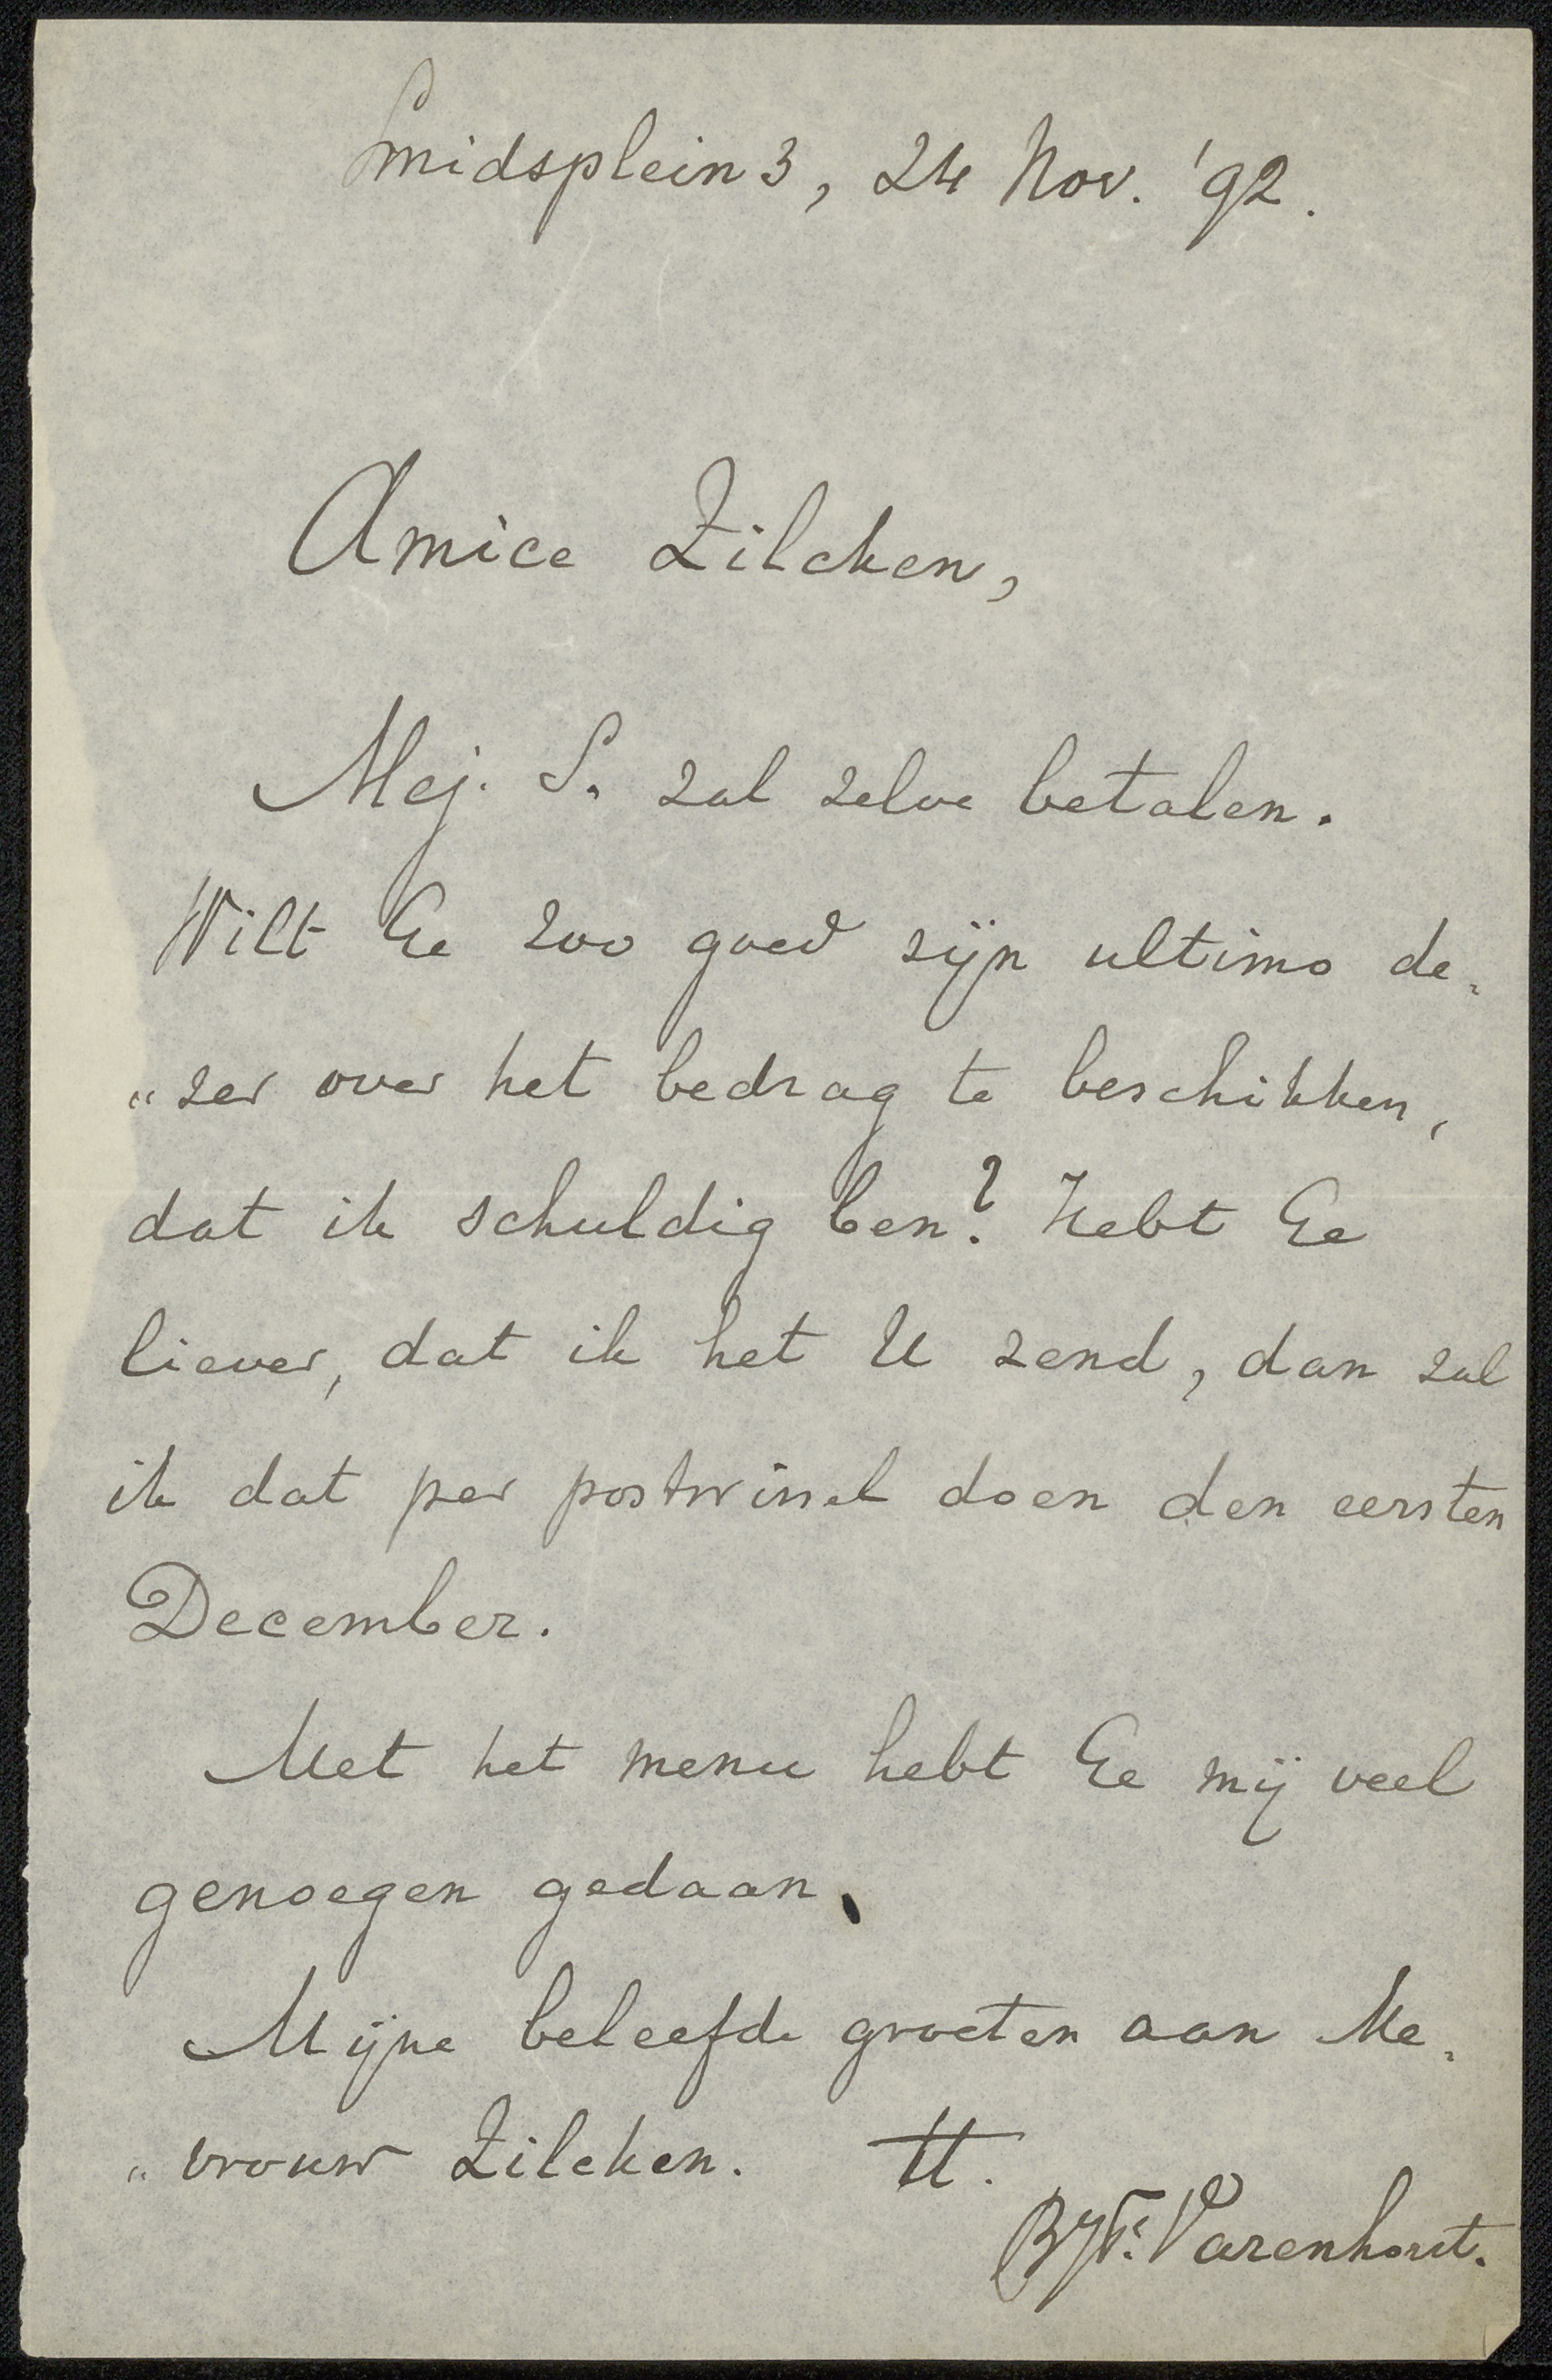 Smidsplein 3, 24 Nov. '92.
Amice Zilcken,
Mej. S. zal zelve betalen.
Wilt Ge zoo goed zijn ultimo de„
„zer over het bedrag te beschikken,
dat ik schuldig ben? Hebt Ge
liever, dat ik het U zend, dan zal
ik dat per postwissel doen den eersten
December.
Met het menu hebt Ge mij veel
genoegen gedaan.
Mijne beleefde groeten aan Me„
„vrouw Zilcken. tt.
Varenhorst.